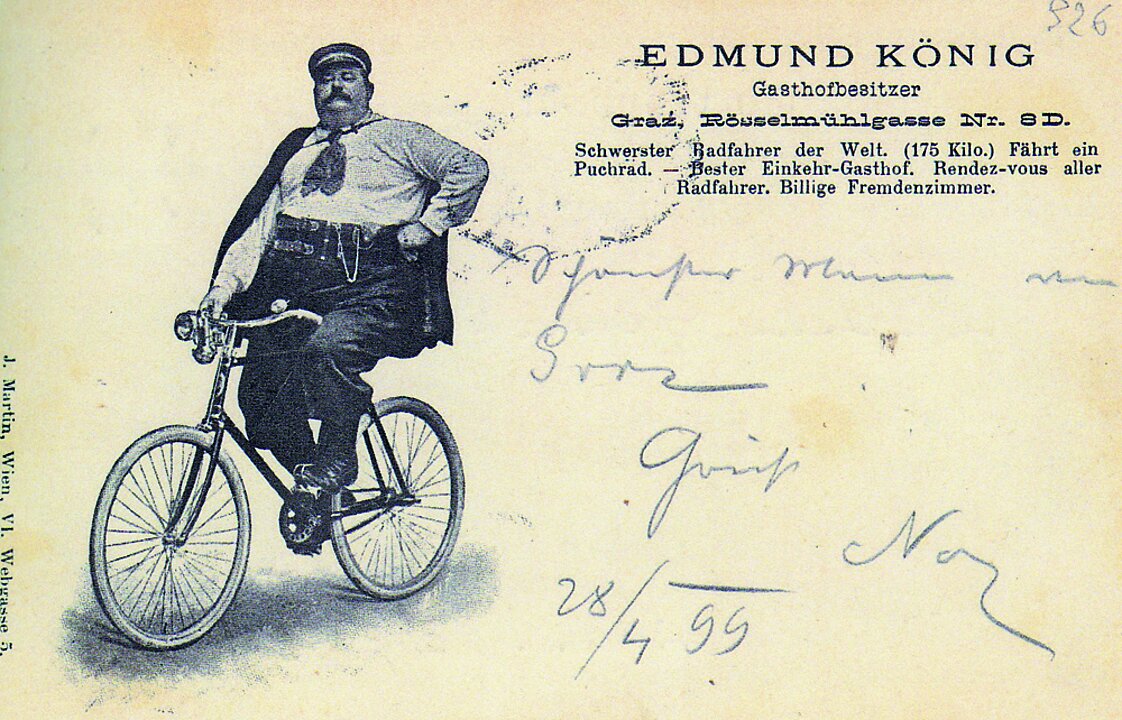 926
EDMUND KÖNIG
Gasthofbesitzer
Graz, Rösselmühlgasse Nr. 8 D.
Schwerster Radfahrer der Welt. (175 Kilo.) Fährt ein
Puchrad. — Bester Einkehr-Gasthof. Rendez-vous aller
Radfahrer. Billige Fremdenzimmer.
Schönster Mann von
Graz
Gruß
28/4 99
J. Martin, Wien, VI. Webgasse 5.